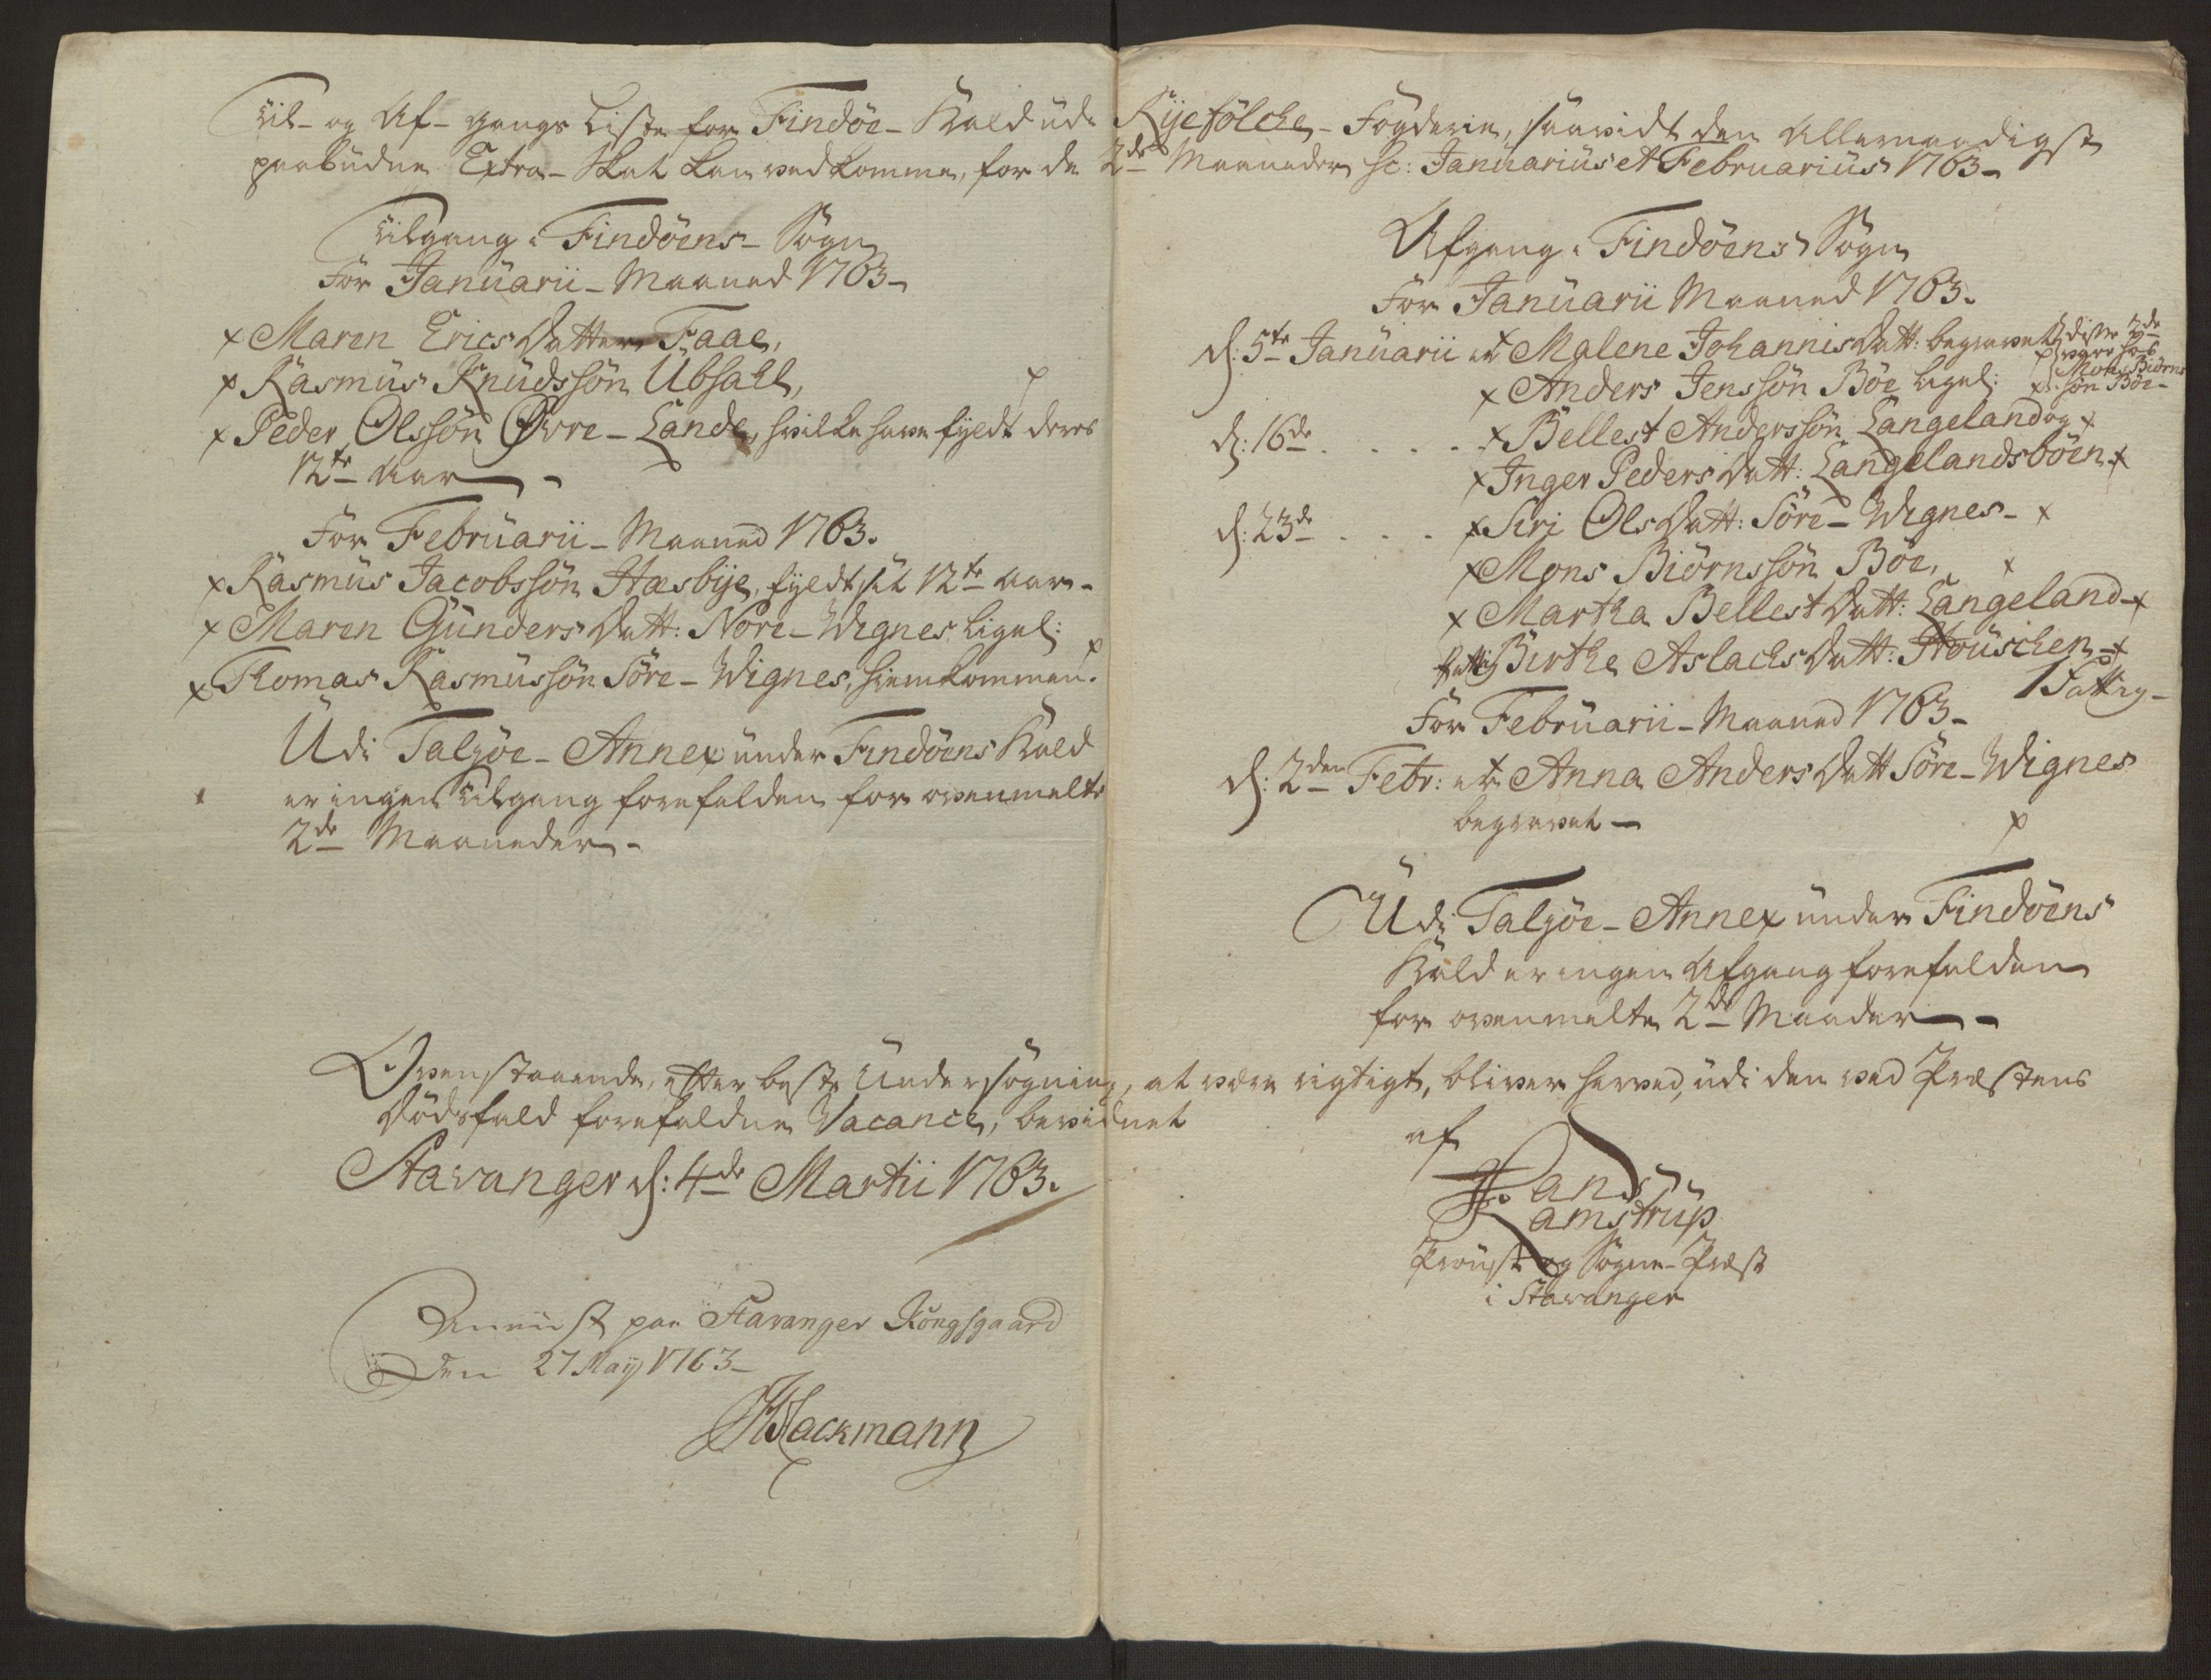 Til- og Af- gangs Liste for Findöe- Kald udi Ryefölche- Fögderie, saavidt den Allernaadigst
paabudne Extra- Skat kan vedkomme, for de 2de Maaneder sc: Januarius et Februarius 1763-
Tilgang i Findöens- Sogn
For Januarii- Maaned 1763-
x Maren EricsDatter Faae,
x Rasmus Knudssön Ubsahl,
x Peder Olssön Øvre- Lande, hvilke have fyldt deres
12te Aar-
For Februarii- Maaned 1763.
x Rasmus Jacobssön Hæsbye, fyldt sit 12te Aar-
x Maren GundersDatt: Nore- Wignes ligel:
x Thomas Rasmussön Söre- Wignes, hiemkommen.
Udi Talgöe- Annex under Findöens Kald
er ingen Tilgang forefalden for ovenmelte
2de Maaneder-
Afgang i Findöens Sogn
For Januarii Maaned 1763.
d: 5te Januarii er Malene JohannisDatt: begravet disse 2de
vare hos
x Anders Jenssön Böe ligel: Mons Biörns
sön Böe-
d: 16de . . . . x Bellest Anderssön Langeland og x
x Inger PedersDatt: Langelandsböen x
d: 23de . . . x Siri OlsDatt: Söre- Wignes- x
x Mons Biörnssön Böe, x
x Martha BellestDatt: Langeland- x
fattig Birthe AslachsDatt: Houschen- x
1 Fattig-
For Februarii- Maaned 1763-
d: 2den Febr: er Anna AndersDatt Söre- Wignes
begravet-
Udi Talgöe- Annex under Findöens
Kald er ingen Afgang forefalden
for ovenmelte 2de Maaneder-
Ovenstaaende, efter beste Undersögning, at være rigtigt, bliver herved, udi den ved Præstens
Dödsfald forefaldne Vacance, bevidnet
Stavanger d: 4de Martii 1763.
af
Hans
Ramstrup
Proust og Sogne- Præst
i Stavanger
Anviist paa Stavanger Kongsgaard
Den 27 Maij 1763-
Hackmann